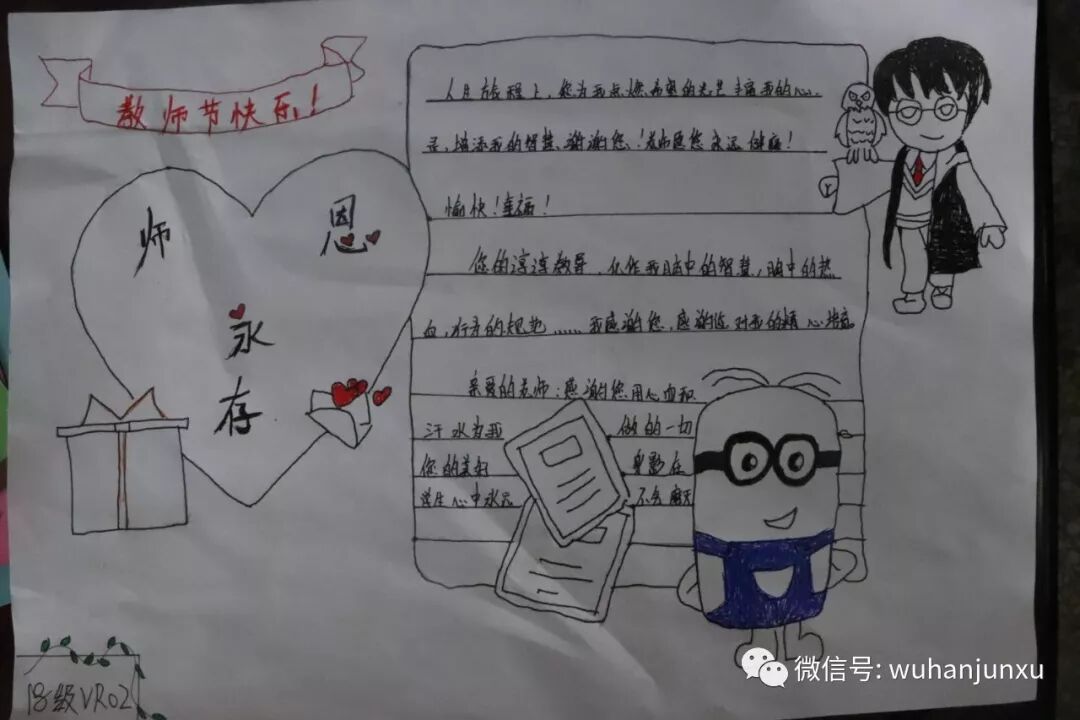 教师节快乐!
师恩
永
存
人生旅程上,您为我点燃希望的光芒丰富我的心
灵,增添我的智慧.谢谢您!老师愿您永远健康!
愉快!幸福!
您的谆谆教导,化作我脑中的智慧,胸中的热
血,行为的规范......我感谢您,感谢您对我的精心培育。
亲爱的老师:感谢您用心血和
汗水为我 做的一切
您的美好 身影在
学生心中永远 不会磨灭
18级VR02
微信号: wuhanjunxu